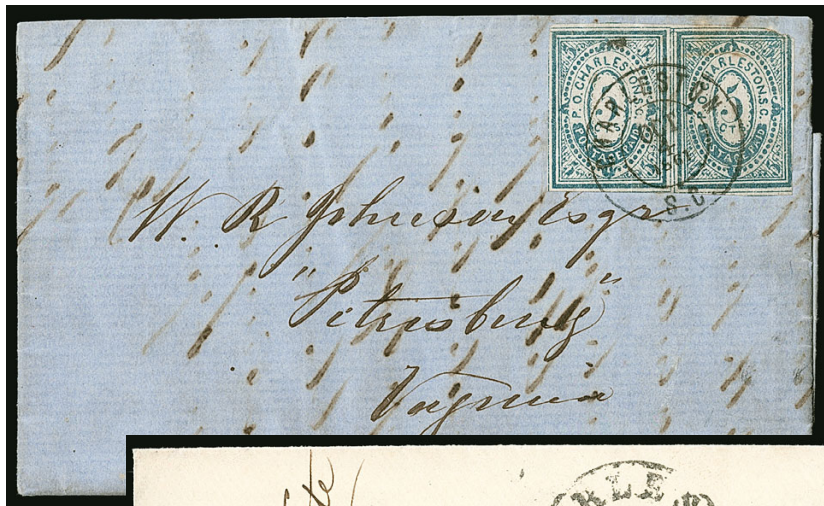 P.O. CHARLESTON, S.C. 5 POSTAGE PAID
P.O. CHARLESTON, S.C. 5 POSTAGE PAID
CHARLESTON S.C.
1861
W. R Johnson Esqr
"Petersburg"
Virginia